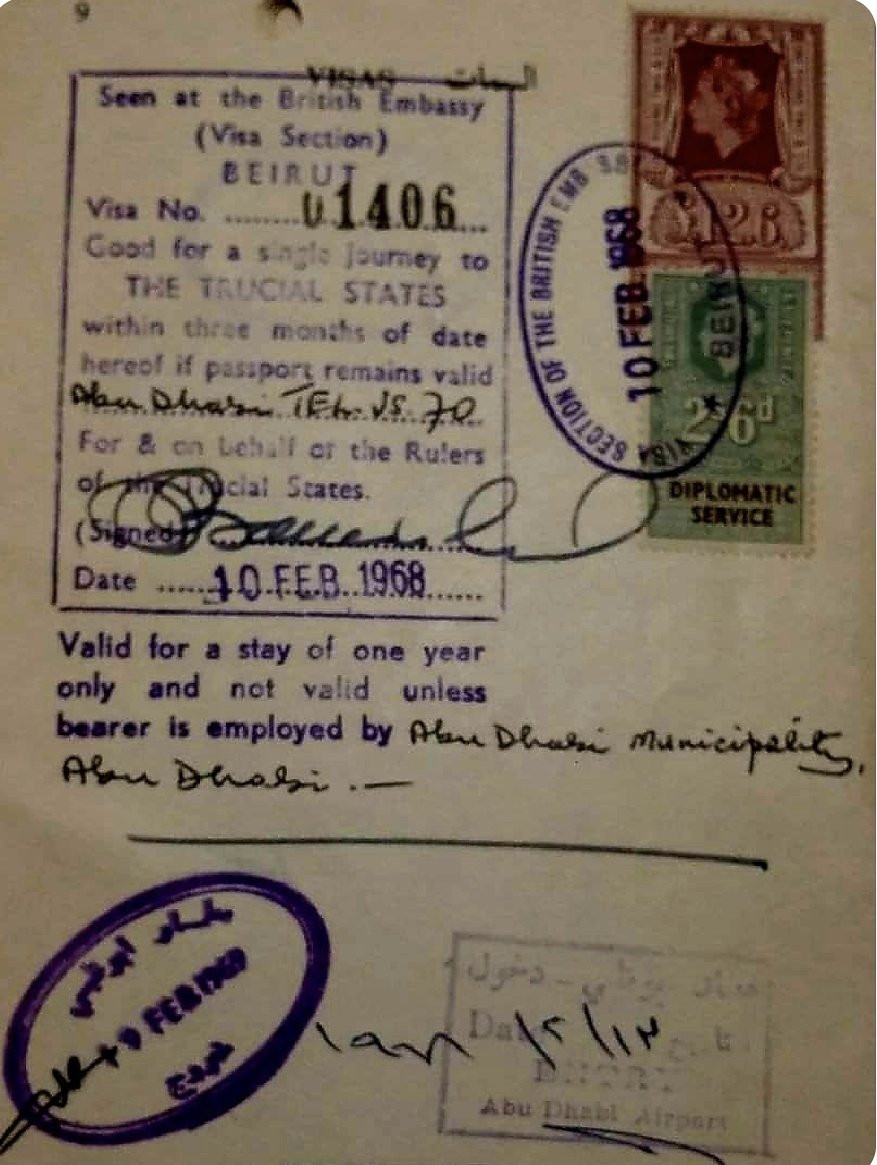 9
VISAS
Seen at the British Embassy
(Visa Section)
BEIRUT
Visa No. ........01406....
Good for a single journey to
THE TRUCIAL STATES
within three months of date
hereof if passport remains valid
Abu Dhabi Tel. 70
For & on behalf of the Rulers
of the Trucial States.
(Signed)
Date ......10 FEB 1968......
VISA SECTION OF THE BRITISH EMB
10 FEB 1968
BEIRUT
12.6
2 6d
DIPLOMATIC
SERVICE
Valid for a stay of one year
only and not valid unless
bearer is employed by Abu Dhabi Municipality,
Abu Dhabi. —
مطار ابوظبي
9 FEB 1969
خروج
دخول
Date تاريخ
١٩٦٨/٢/١٣
Abu Dhabi Airport